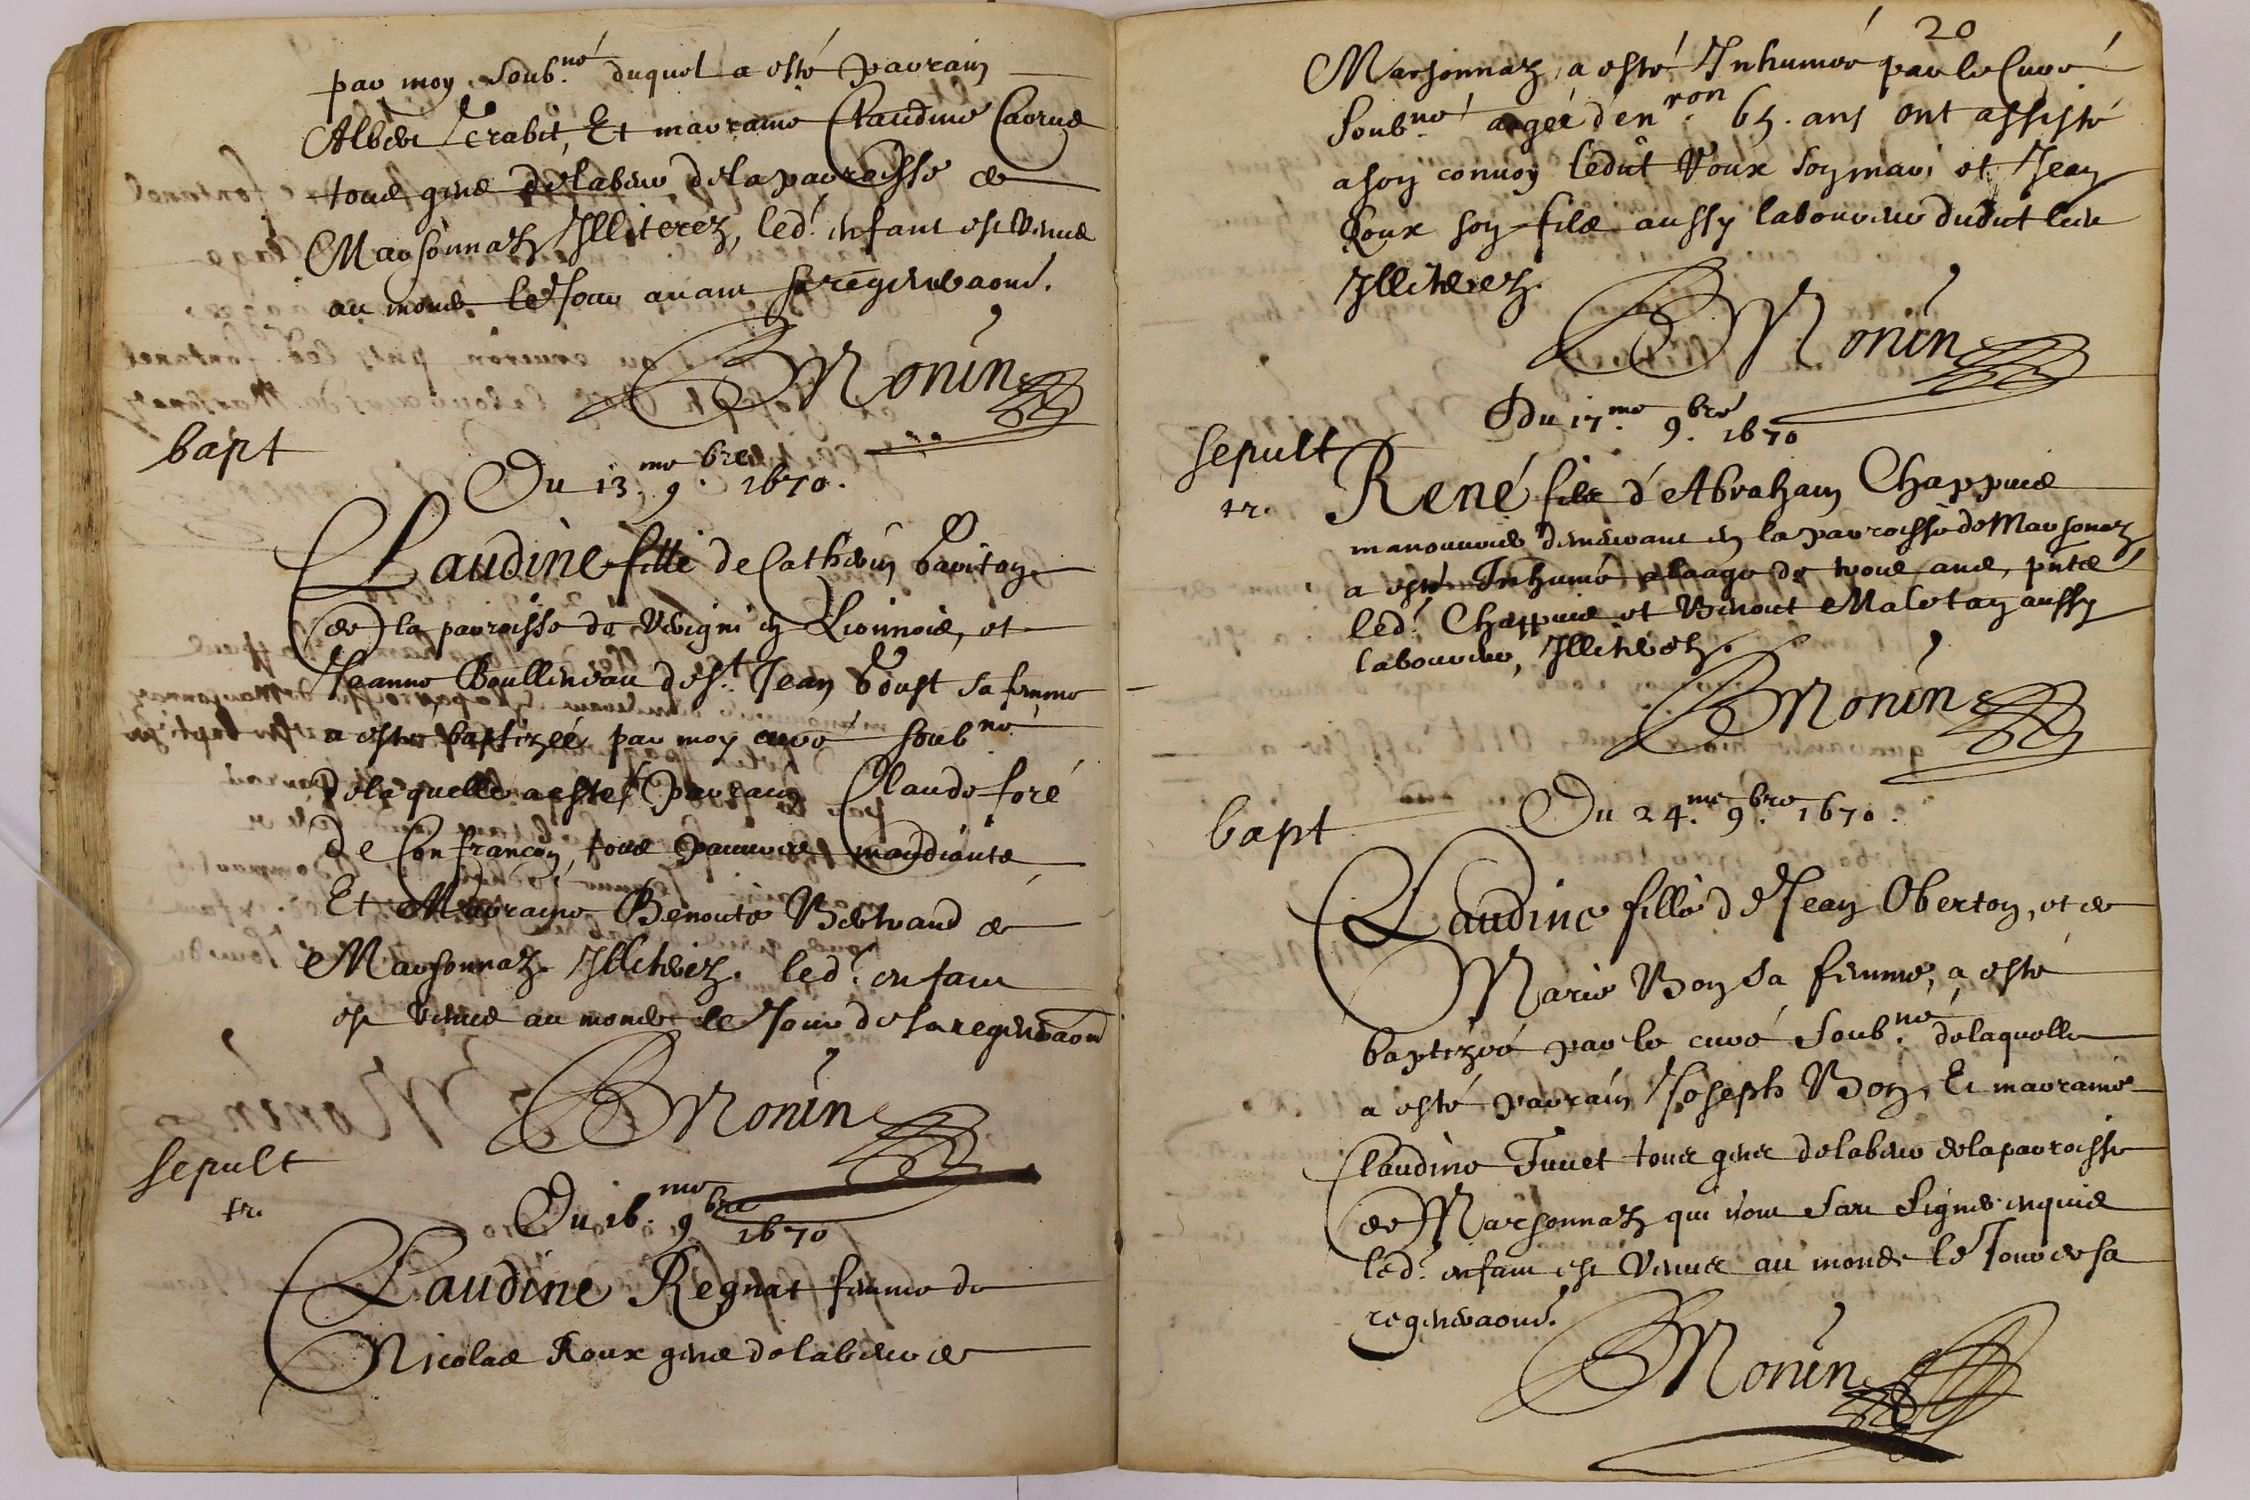 par moy soub.né duquel a esté parrain
Albert Terabit, Et marraine Claudine Carruz
tous gens de labeur de la parroisse de
Marsonnaz Illiterez, led. enfant est venus
au monde le Jour avant sa regeneraon.
BMonin
bapt
Du 13.me 9.bre 1670.
Claudine fille de Catherin
de la parroisse de en Lionnois, et
Jeanne Boullineau de St. Jean sa femme
a esté baptizée par moy curé soub né
de laquelle a esté parrain Claude foré
de Confrançon, tous pauvres mandiants
Et Marraine Benoite Bertrand de
Marsonnaz Illiterez. led. enfant
est venus au monde le Jour de sa regeneraon
BMonin
sepult
tr.
Du 16.me 9.bre 1670
Claudine Regnat femme de
Nicolas Roux gens de labeur de
20
Marsonnaz, a esté Inhumée par le Curé
soub.né aagée d'en.ron 65. ans ont assisté
a son convoy ledit Roux son mari et Jean
Roux son fils aussy laboureur dudit lieu
Illiterez.
BMonin
Du 17.me 9.bre 1670
sepult
tr.
René fils d'Abraham Chappuis
manouvrier demeurant en la parroisse de Marsonaz
a esté Inhumé a laage de trois ans, pnts
led. Chappuis et Benoit Maletay aussy
laboureur, Illiterez.
BMonin
bapt
Du 24.me 9.bre 1670.
Claudine fille de Jean Oberton, et de
Marie Bon sa femme, a esté
baptizée par le curé soub.né de laquelle
a esté parrain Joseph Bon, Et marraine
Claudine Tuvet tous gens de labeur de la parroisse
de Marsonnaz qui nont sceu signer enquis
led. enfant est venus au monde le Jour de sa
regeneraon.
BMonin